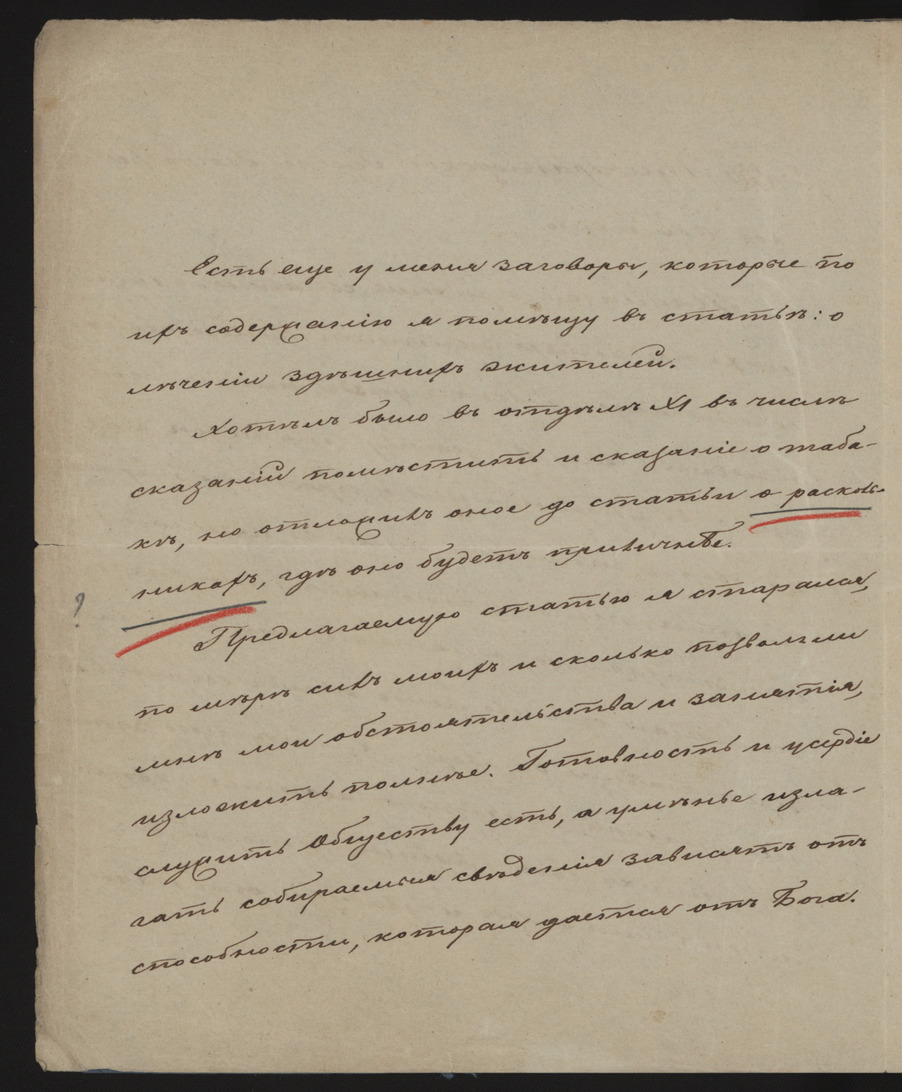 Есть еще у меня заговоры, которые по
ихъ содержанію я помѣщу въ статьѣ: о
лѣченіи здѣшнихъ жителей.
Хотѣлъ было въ отдѣлѣ XI въ числѣ
сказаній помѣстить и сказаніе о таба-
кѣ, но отложилъ оное до статьи о расколь-
никахъ, гдѣ оно будетъ приличнѣе.
?
Предлагаемую статью я старался,
по мѣрѣ силъ моихъ и сколько позволили
мнѣ мои обстоятельства и занятія,
изложить полнѣе. Готовность и усердіе
служить Обществу есть, а умѣнье изла-
гать собираемыя свѣдѣнія зависятъ отъ
способности, которая дается отъ Бога.